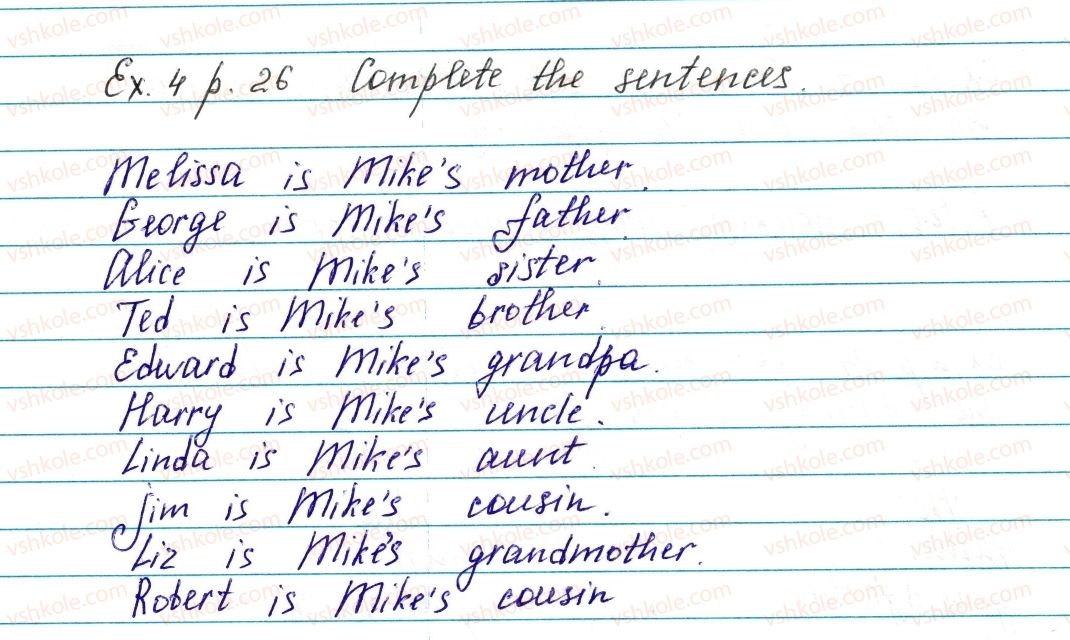 Ex. 4 p. 26 Complete the sentences.
Melissa is Mike's mother.
George is Mike's father.
Alice is Mike's sister.
Ted is Mike's brother.
Edward is Mike's grandpa.
Harry is Mike's uncle.
Linda is Mike's aunt.
Jim is Mike's cousin.
Liz is Mike's grandmother.
Robert is Mike's cousin
vshkole.com